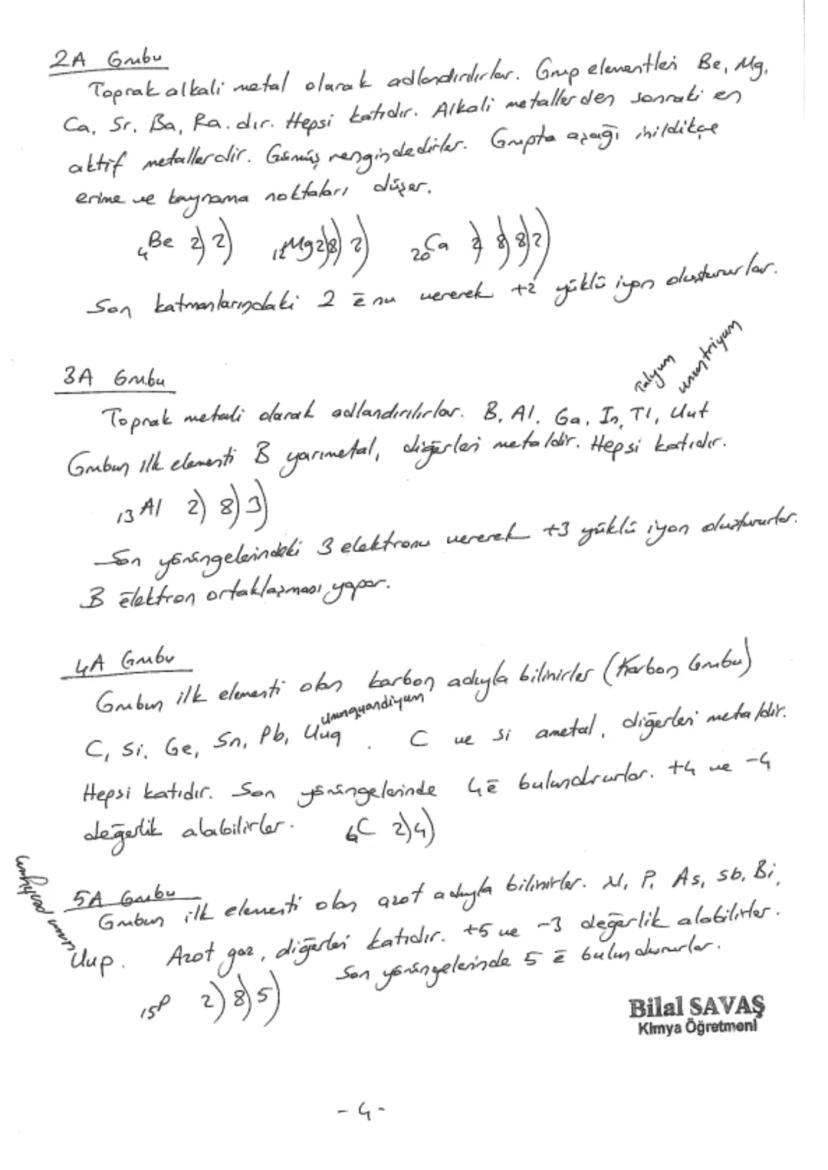 2A Grubu
Toprak alkali metal olarak adlandırılırlar. Grup elementleri Be, Mg,
Ca, Sr, Ba, Ra. dır. Hepsi katıdır. Alkali metallerden sonraki en
aktif metallerdir. Gümüş rengindedirler. Grupta aşağı inildikçe
erime ve kaynama noktaları düşer.
4Be 2) 2) 12Mg 2) 8) 2) 20Ca 2) 8) 8) 2)
Son katmanlarındaki 2 ē nu vererek +2 yüklü iyon oluştururlar.
3A Grubu
Talyum
ununtriyum
Toprak metali olarak adlandırılırlar. B, Al, Ga, In, Tl, Uut
Grubun ilk elementi B yarımetal, diğerleri metaldir. Hepsi katıdır.
13Al 2) 8) 3)
Son yörüngelerindeki 3 elektronu vererek +3 yüklü iyon oluştururlar.
B elektron ortaklaşması yapar.
4A Grubu
Grubun ilk elementi olan karbon adıyla bilinirler (Karbon Grubu)
Ununquandiyum
C, Si, Ge, Sn, Pb, Uuq . C ve Si ametal, diğerleri metaldir.
Hepsi katıdır. Son yörüngelerinde 4ē bulundururlar. +4 ve -4
değerlik alabilirler. 6C 2) 4)
5A Grubu
Grubun ilk elementi olan azot adıyla bilinirler. N, P, As, Sb, Bi,
Uup. Azot gaz, diğerleri katıdır. +5 ve -3 değerlik alabilirler.
Son yörüngelerinde 5 ē bulundururlar.
15P 2) 8) 5)
Bilal SAVAŞ
Kimya Öğretmeni
- 4 -